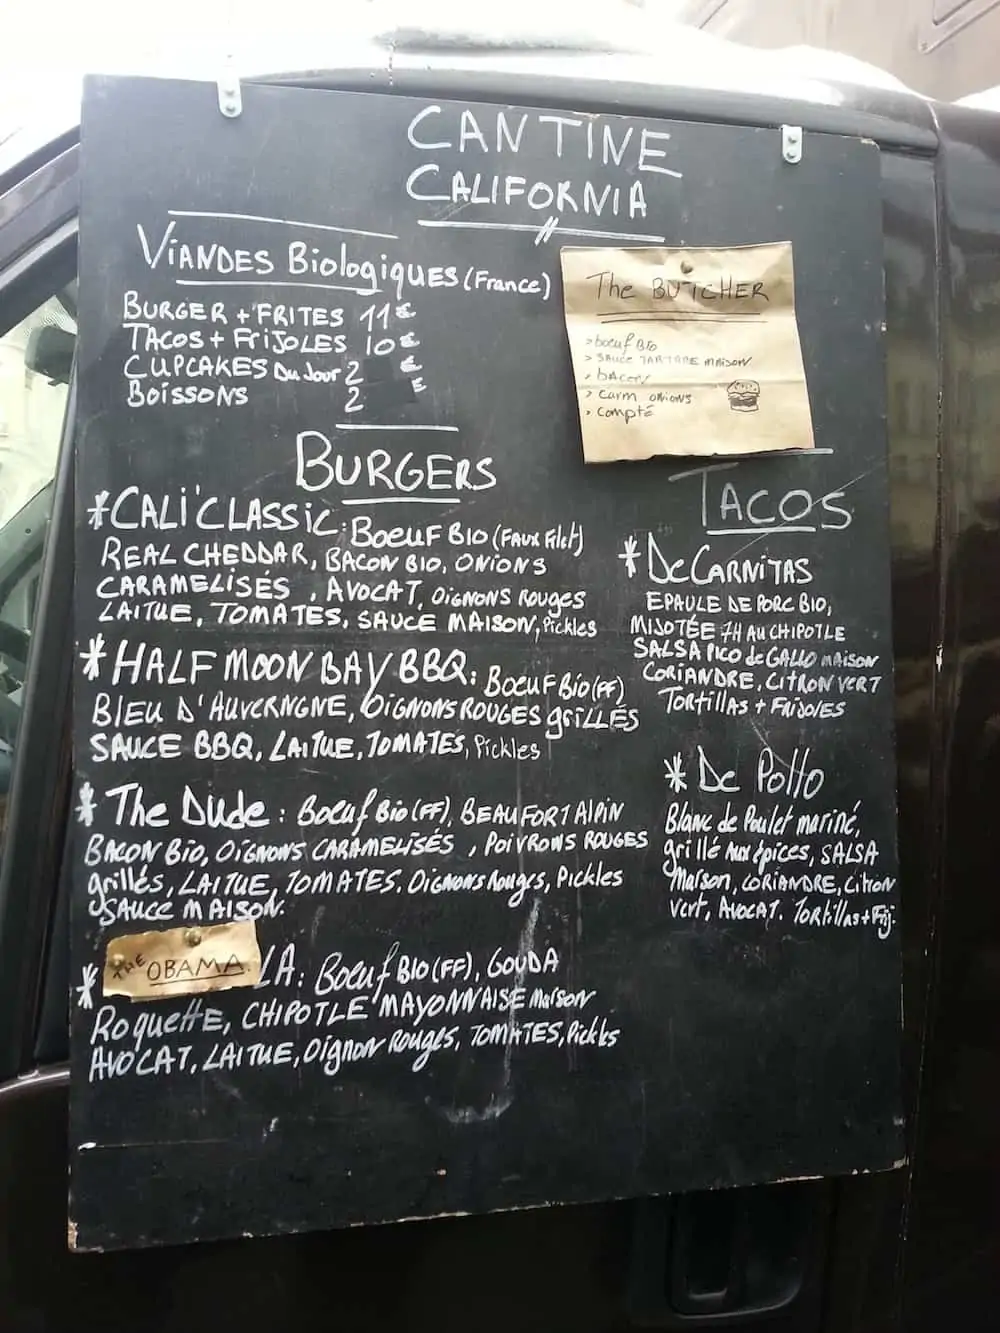 CANTINE
CALIFORNIA
VIANDES BIOLOGIQUES (FRANCE)
BURGER + FRITES 11€
TACOS + FRIJOLES 10€
CUPCAKES Du Jour 2 €
BOISSONS 2 €
The BUTCHER
> boeuf BIO
> SAUCE TARTARE MAISON
> bacon
> carm onions
> compté
BURGERS
* CALI'CLASSIC: BOEUF BIO (FAUX FILET)
REAL CHEDDAR, BACON BIO, ONIONS
CARAMELISES, AVOCAT, OIGNONS ROUGES
LAITUE, TOMATES, SAUCE MAISON, Pickles
* HALF MOON BAY BBQ: BOEUF BIO (FF)
BLEU D'AUVERNGNE, OIGNONS ROUGES grillÉS
SAUCE BBQ, LAITUE, TOMATES, Pickles
* The Dude: Boeuf Bio (FF), BEAUFORT ALPIN
BACON BIO, OIGNONS CARAMELISÉS, POIVRONS ROUGES
grillés, LAITUE, TOMATES, OIGNONS Rouges, Pickles
SAUCE MAISON.
* THE OBAMA LA: Boeuf BIO (FF), GOUDA
Roquette, CHIPOTLE MAYONNAISE Maison
AVOCAT, LAITUE, Oignon Rouges, TOMATES, Pickles
TACOS
* De CARNITAS
EPAULE DE PORC BIO,
MIJOTÉE 7H AU CHIPOTLE
SALSA PICO de GALLO MAISON
CORIANDRE, CITRON VERT
TORTILLAS + FRIJOLES
* De Pollo
Blanc de Poulet mariné,
grillé Aux épices, SALSA
Maison, CORIANDRE, Citron
vert, AVOCAT. Tortillas + Frij.